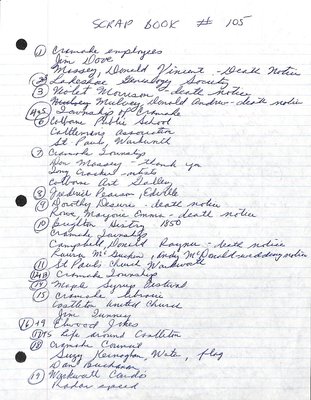 SCRAP BOOK # 105
① Cramahe employees
Jim Dove
Massey, Donald Vincent - Death Notice
② Lakeshore Genealogy Society
③ Violet Morrison - death notice
Mulvey, Donald Andrew - death notice
Township of Cramahe
⑥ Colborne Public School
Cattlemens Association
St. Pauls, Warkworth
⑦ Cramahe Township
Don Massey - thank you
Tony
Colborne Art Gallery
⑧ Pearson
⑨ Dorothy - death notice
Rowe, Marjorie Emma - death notice
⑩ Brighton History 1850
Cramahe Township
Campbell, Donald Raynor - death notice
Andy McDonald wedding notice
⑪ St Pauls Church Warkworth
Cramahe Township
⑭ Maple Syrup Festival
⑮ Cramahe Libraries
Castleton United Church
Jim Tunney
⑯ Elwood Jokes
Life around Castleton
⑱ Cramahe Council
Suzy Kernaghan, Water, flag
Dan Buchanan
⑲ Warkworth Cards
Radar speed